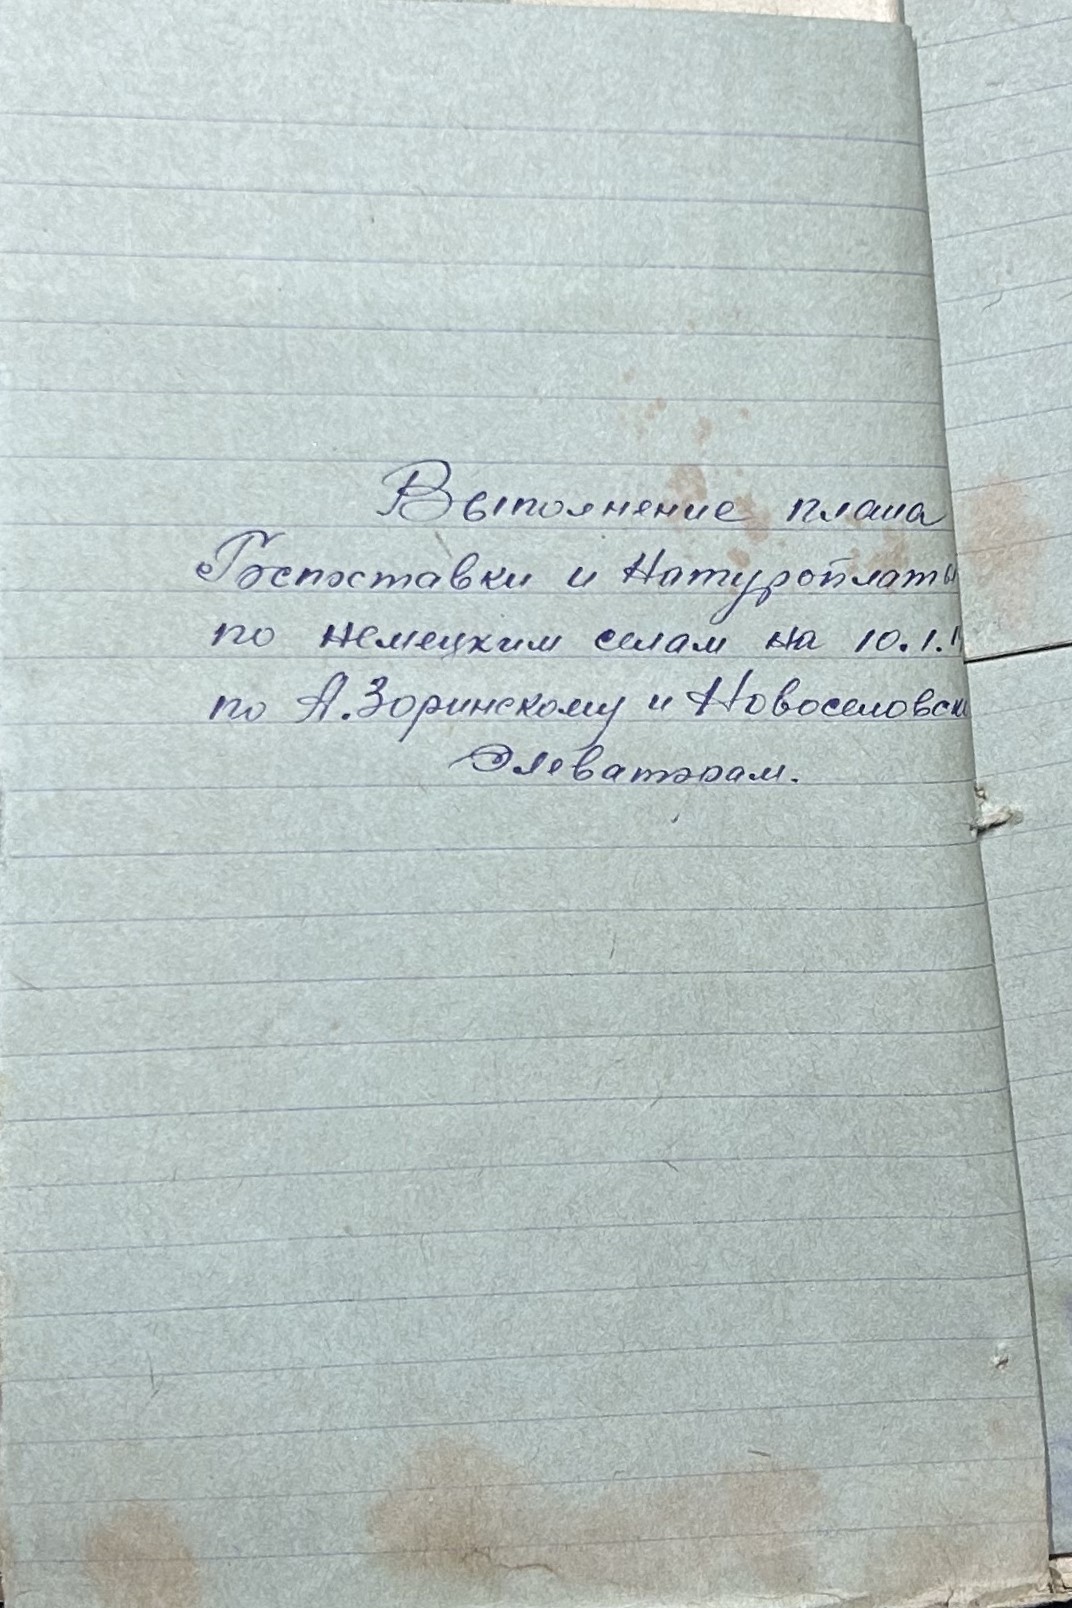 Выполнение плана
Госпоставки и Натуроплаты
по немецким селам на 10.1.1
по А.Зоринскому и Новоселовск
Элеваторам.